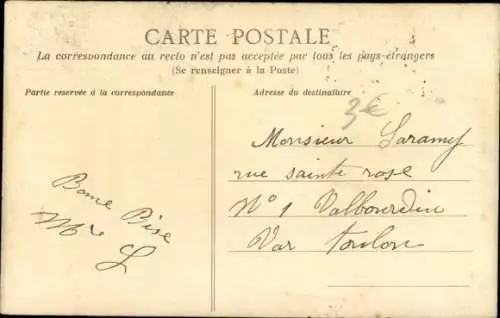 CARTE POSTALE
La correspondance au recto n'est pas acceptée par tous les pays étrangers
(Se renseigner à la Poste)
Partie reservée à la correspondance
Adresse du destinataire
3€
Monsieur Saramy
rue sainte rose
N° 1 Valbourdin
Var Toulon
Bonne Bise
L